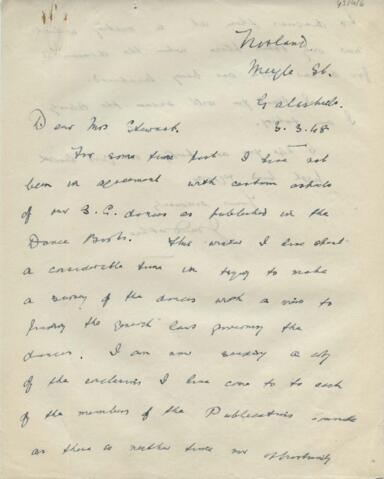 Norland
Meigle St.
Galashiels.
3.3.48
Dear Mrs Stewart.
For some time past I have not
been in agreement with certain aspects
of our S.C. dances as published in the
Dance Books. This winter I have spent
a considerable time in trying to make
a survey of the dances with a view to
finding the general laws governing the
dances. I am now sending a copy
of the conclusions I have come to to each
of the members of the Publications
as there is neither time nor opportunity